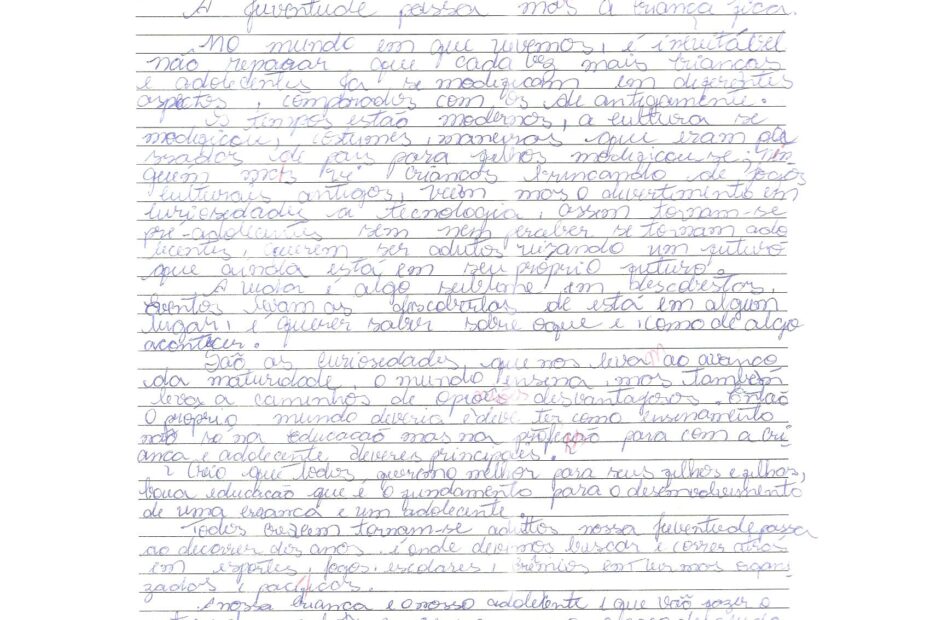 A juventude passa mas a criança fica.
No mundo em que vivemos, é inevitável
não reparar que cada vez mais crianças
e adolecentes já se modificam em diferentes
aspectos, comparados com os de antigamente.
Os tempos estão modernos, a cultura se
modificou, costumes, maneiras que eram pa
ssados de pais para filhos modificou-se, nin
guém mais vê crianças brincando de jogos
culturais antigos, veem mas o divertimento em
curiosidades a tecnologia, assim tornam-se
pré-adolecentes sem nem perceber se tornam ado
lecentes, querem ser adutos visando um futuro
que ainda está em seu próprio futuro.
A vida é algo sublime em descobertas,
eventos levam as descobertas de está em algum
lugar, é querer saber sobre oque e como de algo
acontecer.
São as curiosidades que nos levam ao avanço
da maturidade, o mundo ensina, mas também
leva a caminhos de opções desvantajosos. Então
O próprio mundo deveria e deve ter como ensinamento
não so na educação mas na proteção para com a cri
ança e adolecente deveres principales.
Creio que todos queremo melhor para seus filhos e filhas,
boua educação que é o fundamento para o desenvolvimento
de uma criança e um adolecente.
Todos crescem tornam-se adultos nossa juventude passa
ao decorrer dos anos, é onde devemos buscar e correr atrás
em esportes, jogos, escolares, grêmios em turmas organ
izados e pacíficos.
A nossa criança e o nosso adolecente é que vão fazer o